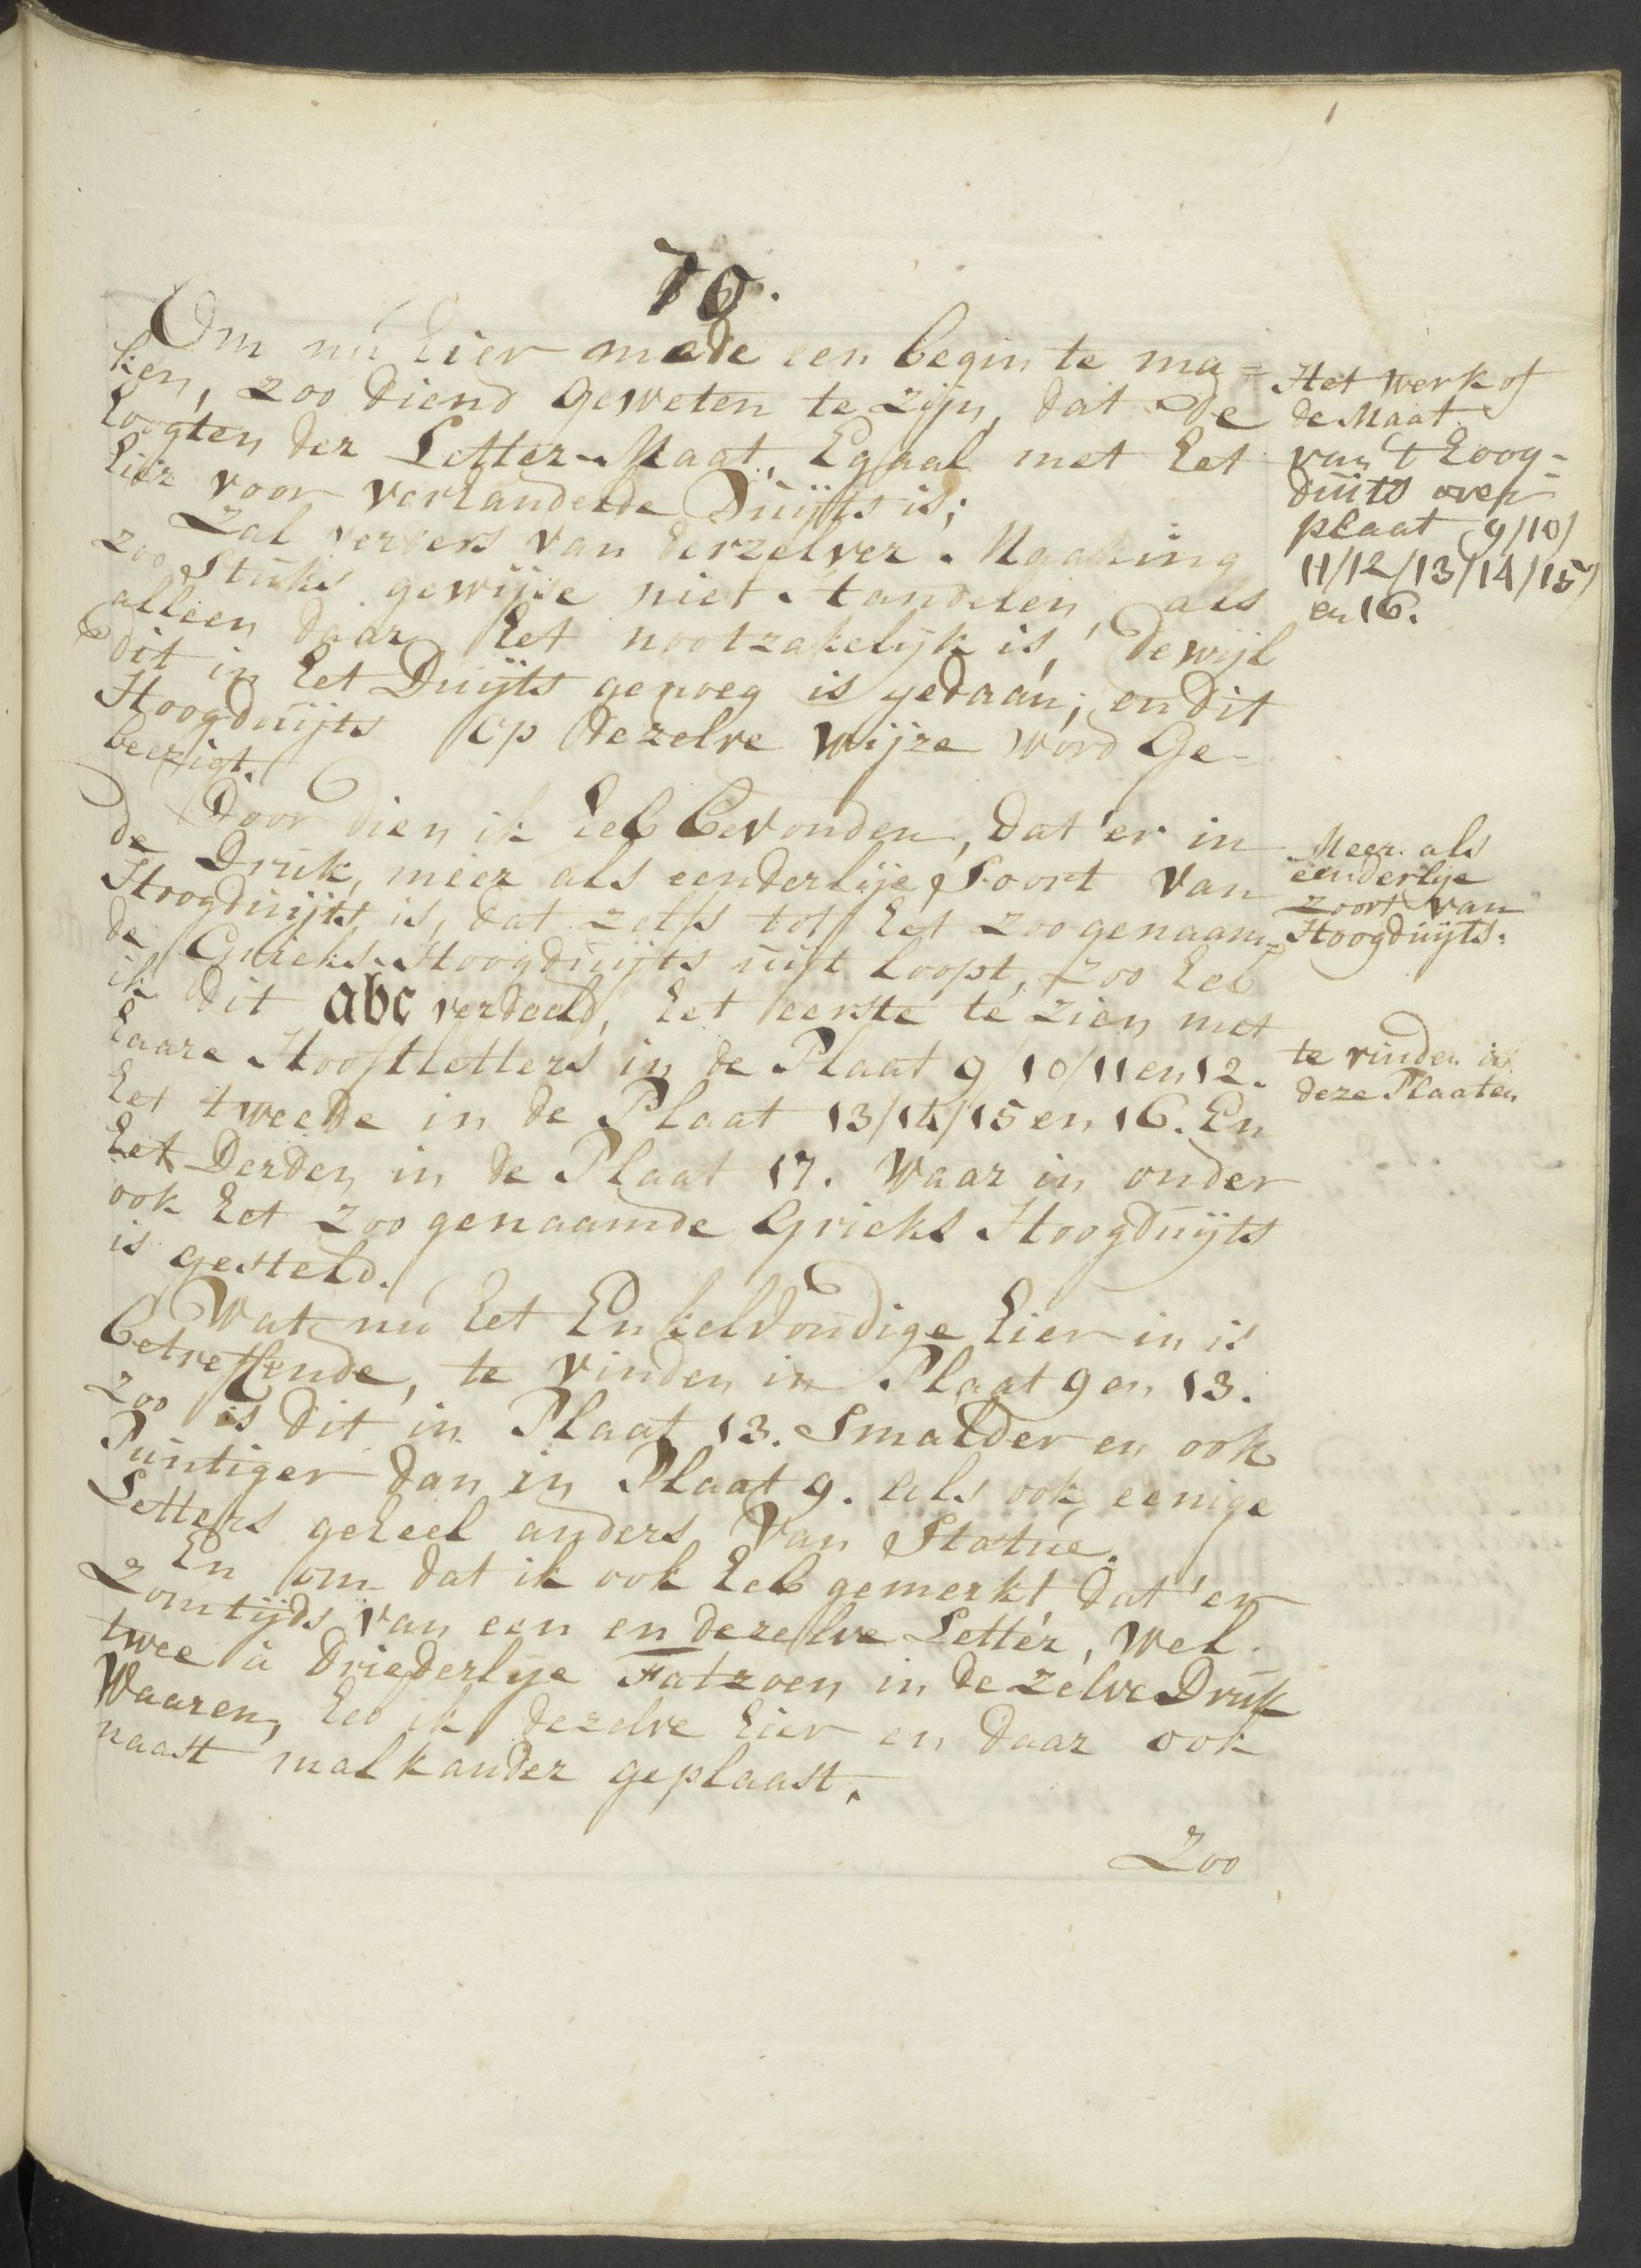 70.
Om nu hier mede een begin te ma=
ken, zoo diend geweten te zijn, dat de
hoogten der Letter-Maat, Egaal met het
hier voor verhandelde Duijts is;
Zal verders van derzelver Maaking
zoo stuks gewijse niet Handelen, als
alleen daar het nootzakelijk is, dewijl
dit in het Duijts genoeg is gedaan; en dit
Hoogduijts op dezelve wijze word Ge-
beezigt.
Door dien ik heb bevonden, dat'er in
de Druk, meer als eenderlije Soort van
Hoogduijts is, dat zelfs tot het zoogenaam=
de Grieks-Hoogduijts uijt loopt, zoo heb
ik dit abc verdeeld, het eerste te zien met
haare Hooftletters in de Plaat 9/10/11 en 12.
het tweede in de Plaat 13/14/15 en 16. En
het Derden in de Plaat 17. Waar in onder
ook het zoo genaamde Grieks Hoogduijts
is gesteld.
Wat nu het Enkelvoudige hier in is
betreffende, te vinden in Plaat 9 en 13.
zoo is dit in Plaat 13. Smalder en ook
Puntiger dan in Plaat 9. als ook eenige
Letters geheel anders van Statue.
En om dat ik ook heb gemerkt dat'er
Zomtijds van een en dezelve Letter, wel
twee à driederlije Fatzoen in dezelve Druk
Waaren, heb ik dezelve hier en daar ook
naast malkander geplaast.
Zoo
Het werk of
de Maat
van 't hoog=
duits over
plaat 9/10/
11/12/13/14/15/
en 16.
Meer als
eenderlije
zoort van
Hoogduijts.
te vinden in
deze Plaaten